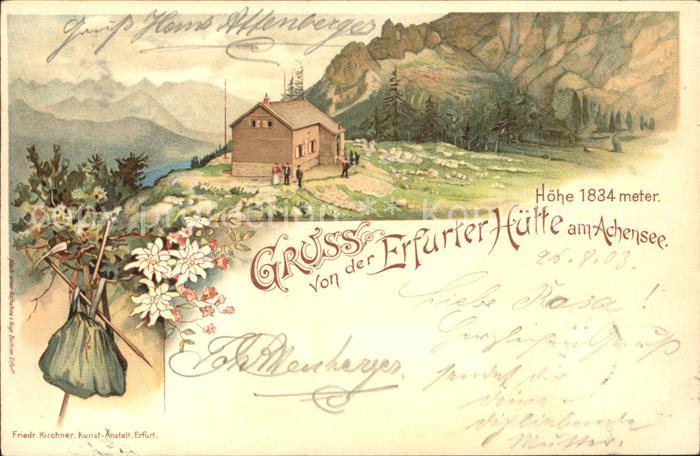 Gruß Hans Attenberger
Höhe 1834 meter.
GRUSS
von der Erfurter Hütte am Achensee.
26.8.03.
Liebe Rosa!
Herzlichen Gruß
sendet dir
deine
dichliebende
Mutter.
Friedr. Kirchner, Kunst-Anstalt, Erfurt.